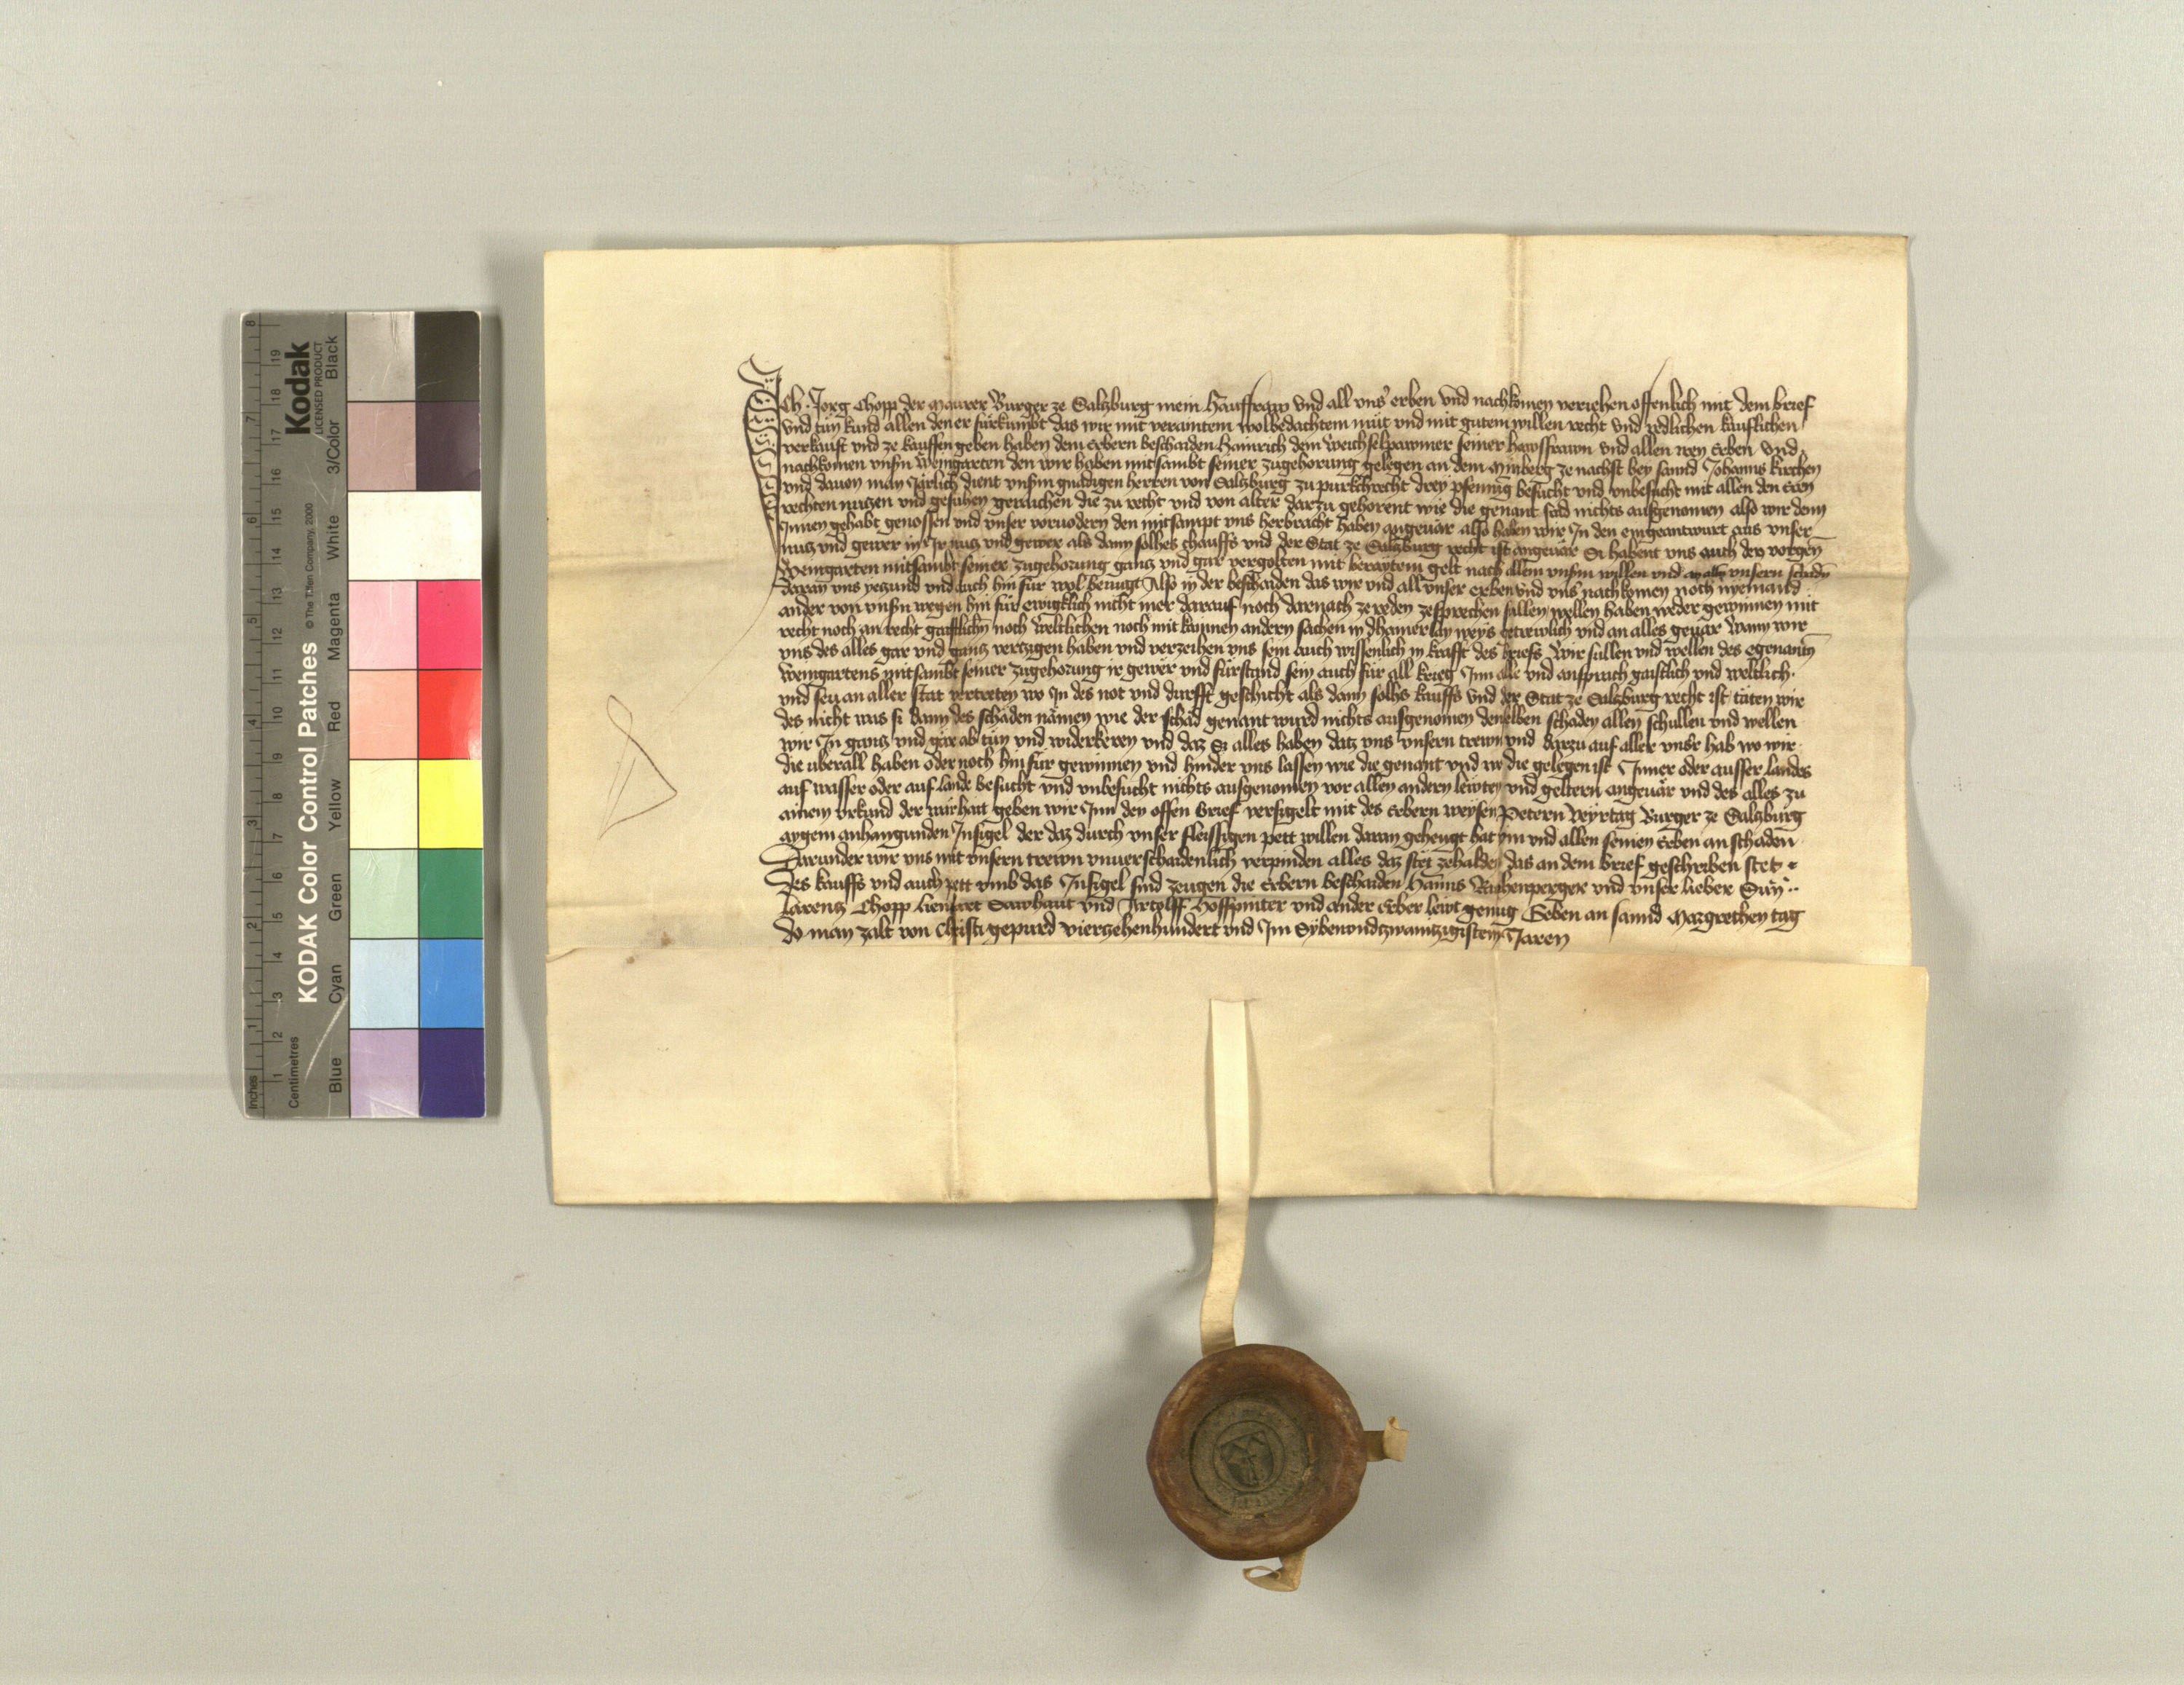 Ich Jorg Chopp der Maurer Burger ze Salzburg mein Hausfraw und all uns' erben und nachkomen veriehen offenlich mit dem brief
und tun kund allen den er fürkumbt das wir mit veraintem wolbedachtem mut und mit gutem willen recht und redlichen kauflichen
verkauft und ze kauffen geben haben dem Erbern beschaiden Hainrich dem Weichselpawmer seiner hawsfrawn und allen iren Erben und
nachkomen unsn Weingarten den wir haben mitsambt seiner zugehorung gelegen an dem Münberg ze nachst bey sannd Johanns kirchen
und davon man Järlich dient unsm gnädigen herren von Salzburg zu purkchrecht drey pfening besucht und unbesucht mit allen den Ern
rechten nutzen und gesuhen die zu recht und von alter darzu gehorent wie die genant sind nichts ausgenomen also wir den
Innen gehabt genossen und unser vorvodern den mitsampt uns herbracht haben angevär also haben wir In den eingeantwurt aus unser
nutz und gewer in Ir nutz und gewer als dann solhes chauffs und der Stat ze Salzburg recht ist angevär Si habent uns auch den vorgen
Weingarten mitsambt seiner zugehorung gantz und gar vergolten mit beraytem gelt nach allem unsm willen und an all unsern schadn
daran uns yetzund und auch hin für wol benugt Also in der beschaiden das wir und all unser erben und uns' nachkomen noch nyemand
ander von unsn wegen hin für ewigklich nicht mer darauf noch darnach ze reden zesprechen sullen wellen haben weder gewinnen mit
recht noch an recht gaistlichn noch weltlichen noch mit kainen andern sachen in dhainerlay weys getrewlich und an alles gevär Wann wir
uns des alles gar und gantz vertzigen haben und verzeihen uns sein auch wissenlich in krafft des briefs Wir sullen und wellen des egenantn
Weingartens mitsambt seiner zugehorung ir gewer und fürstand sein auch für all krieg Inn alle und anspruch gaistlich und weltlich
und seu an aller stat vertreten wo In des not und durfft geschicht als dann solhs kauffs und der Stat ze Salzburg recht ist täten wir
des nicht was si dann des schaden nämen wie der schad genant wurd nichts ausgenomen denselben schaden allen schullen und wellen
wir In gantz und gar ab tun und widerkeren und daz Si alles haben datz uns unsern trewn und darzu auf aller unsr hab wo wir
die uberall haben oder noch hin für gewinnen und hinder uns lassen wie die genant und wo die gelegen ist Inner oder ausser landes
auf wasser oder auf lande besucht und unbesucht nichts ausgenomen vor allen andern lewten und geltern angevär und des alles zu
ainem urkund der warhait geben wir Inn den offen brief versigelt mit des Erbern weysen Petern Veyrtag Burger ze Salzburg
aygem anhangunden Insigel der daz durch unser fleissigen pett willen daran gehengt hat im und allen seinen Erben an schaden
Darunder wir uns mit unsern trewn unverschaidenlich verpinden alles daz stet zehalden das an dem brief geschriben stet
Des kauffs und auch pett umb das Insigel sind zeugen die Erbern beschaiden Hanns und unser lieber Sun
Larentz Chopp Lienhart Sawhaut und und ander Erber lewt genug Geben an sannd Margrethen tag
do man zalt von Christi gepurd vierzehenhundert und Im Sybenundtzwaintzigistem Jaren
KODAK Color Control Patches
© The Tiffen Company, 2000
Kodak
LICENSED PRODUCT
Blue Cyan Green Yellow Red Magenta White 3/Color Black
Inches 1 2 3 4 5 6 7 8
Centimetres 1 2 3 4 5 6 7 8 9 10 11 12 13 14 15 16 17 18 19